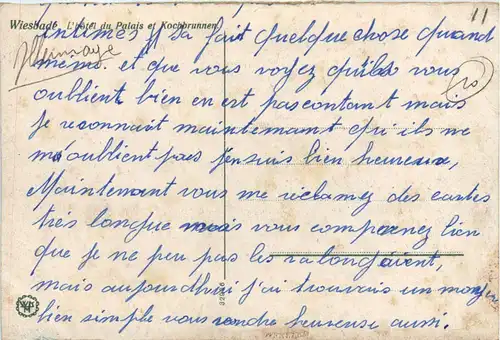 Wiesbade L'hôtel du Palais et Kochbrunnen.
11
intimes sa fait quelque chose quand
Allemagne
mems. et que vous voyez quils vous
20
oublient bien en est pas contant mais
Je reconnait maintemant qui ils ne
m'oublient pas Jensuis bien heureux,
Maintenant vous me réclamez des cartes
très longue mais vous comprenez bien
que je ne peu pas les ralongéaient,
mais aujourdhui j'ai trouvais un moyen
bien simple vous rendre heureuse aussi.